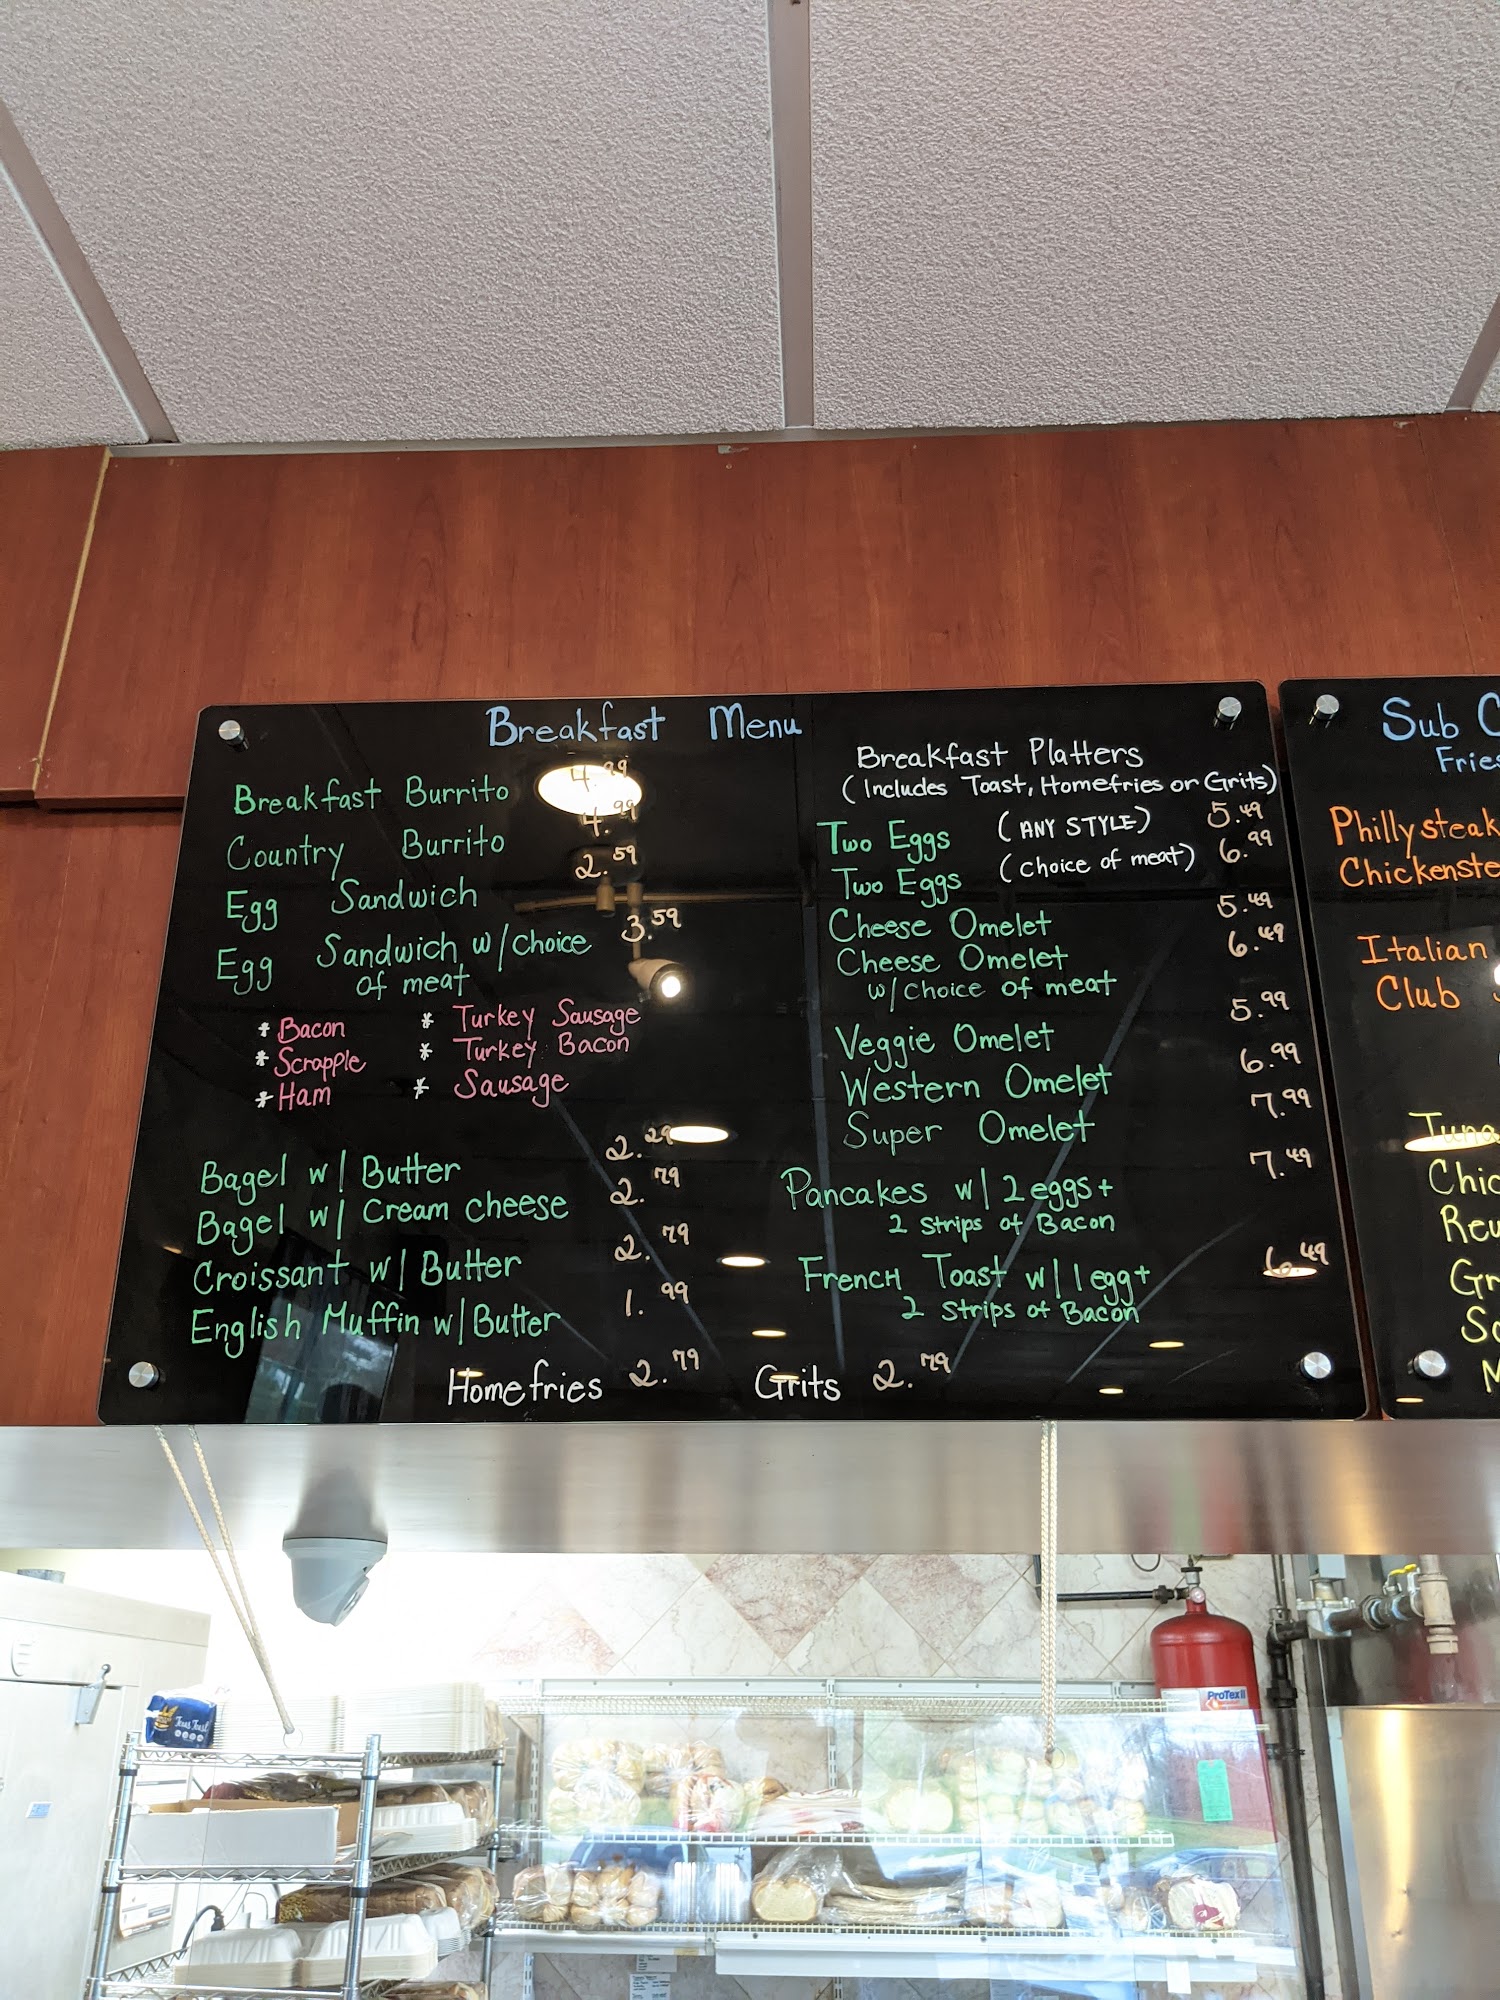 Breakfast Menu
Breakfast Burrito 4.99
Country Burrito 4.99
Egg Sandwich 2.59
Egg Sandwich w/choice 3.59
of meat
* Bacon * Turkey Sausage
* Scrapple * Turkey Bacon
* Ham * Sausage
Bagel w/ Butter 2.29
Bagel w/ Cream cheese 2.79
Croissant w/ Butter 2.79
English Muffin w/Butter 1.99
Breakfast Platters
(Includes Toast, Homefries or Grits)
Two Eggs (ANY STYLE) 5.49
Two Eggs (choice of meat) 6.99
Cheese Omelet 5.49
Cheese Omelet 6.49
w/choice of meat
Veggie Omelet 5.99
Western Omelet 6.99
Super Omelet 7.99
Pancakes w/ 2 eggs + 7.49
2 Strips of Bacon
French Toast w/ 1 egg + 6.49
2 Strips of Bacon
Homefries 2.79 Grits 2.79
Sub
Fries
Philly steak
Italian
Club
Texas Toast
ProTex II